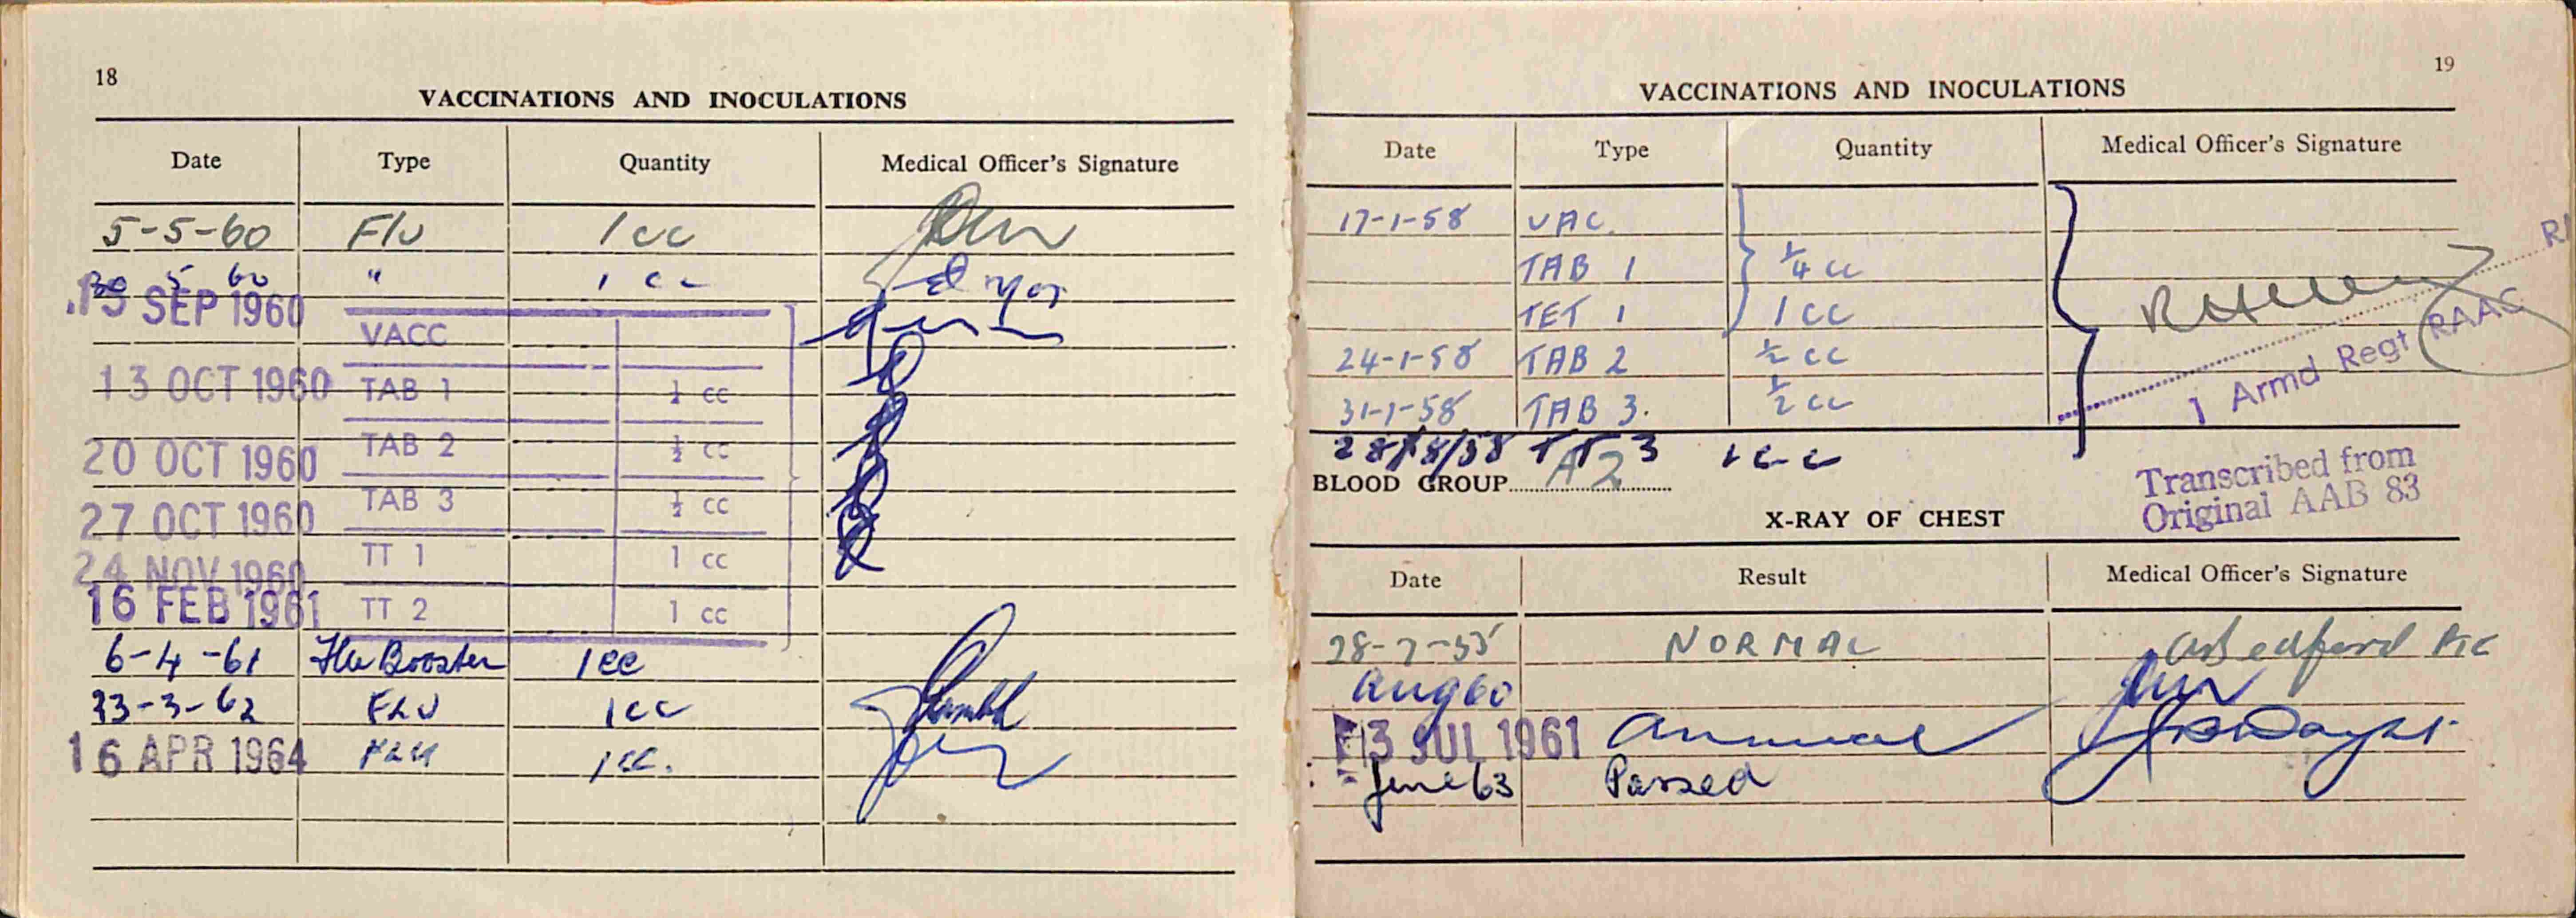 18
VACCINATIONS AND INOCULATIONS
Date Type Quantity Medical Officer's Signature
5-5-60 Flu 1 cc
30 5 60 " 1 cc
15 SEP 1960 VACC
13 OCT 1960 TAB 1 ¼ cc
20 OCT 1960 TAB 2 ½ cc
27 OCT 1960 TAB 3 ½ cc
24 NOV 1960 TT 1 1 cc
16 FEB 1961 TT 2 1 cc
6-4-61 Flu Booster 1cc
23-3-62 FLU 1cc
16 APR 1964 FLU 1cc.
19
VACCINATIONS AND INOCULATIONS
Date Type Quantity Medical Officer's Signature
17-1-58 VAC.
TAB 1 ¼ cc
TET 1 1 cc
24-1-58 TAB 2 ½ cc
31-1-58 TAB 3. ½ cc
1 Armd Regt RAAC
28/8/58 TT 3 1cc
BLOOD GROUP A2
Transcribed from
Original AAB 83
X-RAY OF CHEST
Date Result Medical Officer's Signature
28-7-55 NORMAL Bedford
Aug 60
13 JUL 1961 Annual
June 63 Passed